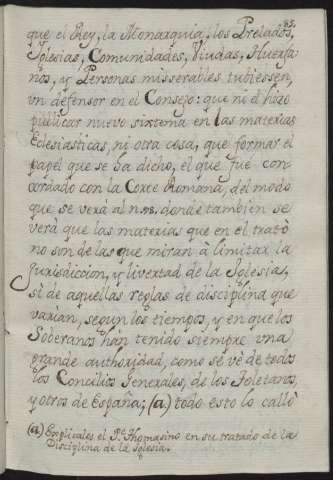 85.
que el Rey, la Monarquia, los Prelados,
Iglesias, Comunidades, Viudas, Huerfa-
nos, y Personas misserables tubiessen,
vn defensor en el Consejo: que ni èl hizo
publicar nuevo sixtema en las materias
Eclesiasticas, ni otra cosa, que formar el
papel que se ha dicho, el que fue con-
cordado con la Corte Romana, del modo
que se verá al n. 98. donde tambien se
verá que las materias que en el trató
no son de las que miran à limitar la
Jurisdiccion, y livertad de la Iglesia,
si de aquellas reglas de disciplina que
varian, segun los tiempos, y en que los
Soberanos han tenido siempre vna
grande authoridad, como se vè de todos
los Concilios Jenerales, de los Toletanos,
y otros de España; (a) todo esto lo calló
(a) el P.e Thomasino en su tratado de la
Disciplina de la Iglesia.